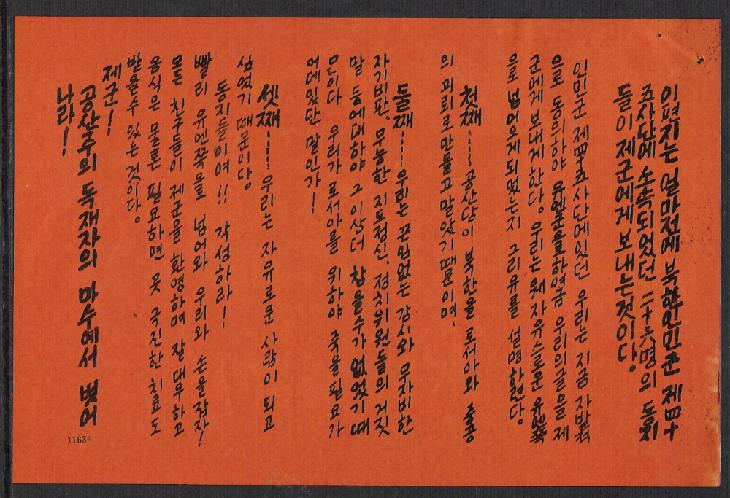 이편지는 얼마전에 북한인민군 제四十
五사단에 소속되었던 二十六명의 동지
들이 제군에게 보내는것이다.
인민군 제四十五사단에있던 우리는 지금 자발적
으로 동의하야 유엔군을하여금 우리의글을 제
군에게 보내게한다. 우리는 왜 자유스로운 유엔쪽
으로 넘어오게되였는지 그리유를 설명하련다.
첫째---공산당이 북한을 로서아와 중공
의 괴리로만들고말았기때문이며,
둘째---우리는 끈임없는 감시와 무자비한
자기비판, 무능한 지도정신, 정치위원들의 거짓
말 등에대하야 그 이상더 참을수가 없었기때
문이다. 우리가 로서아를 위하야 죽을필요가
어데있단 말인가!
셋째---우리는 자유로운 사람이 되고
싶었기 때문이다.
동지들이여!! 각성하라!
빨리 유엔쪽으로 넘어와 우리와 손을잡자!
모든 친우들이 제군을 환영하며 잘대우하고
음식은 물론 필요하면 또 극진한 치료도
받을수 있는것이다.
제군!
공산주의 독재자의 마수에서 벗어
나라!
1163